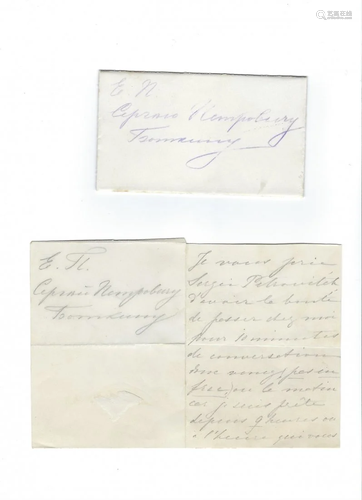 Е. П.
Сергею Петровичу
Боткину
Е. П.
Сергею Петровичу
Боткину
Je vous prie
Sergei Petrovitch
d'avoir la bonté
de passer chez moi
pour 10 minutes
de conversation
le matin
car je suis prête
depuis 9 heures
à l'heure qui vous